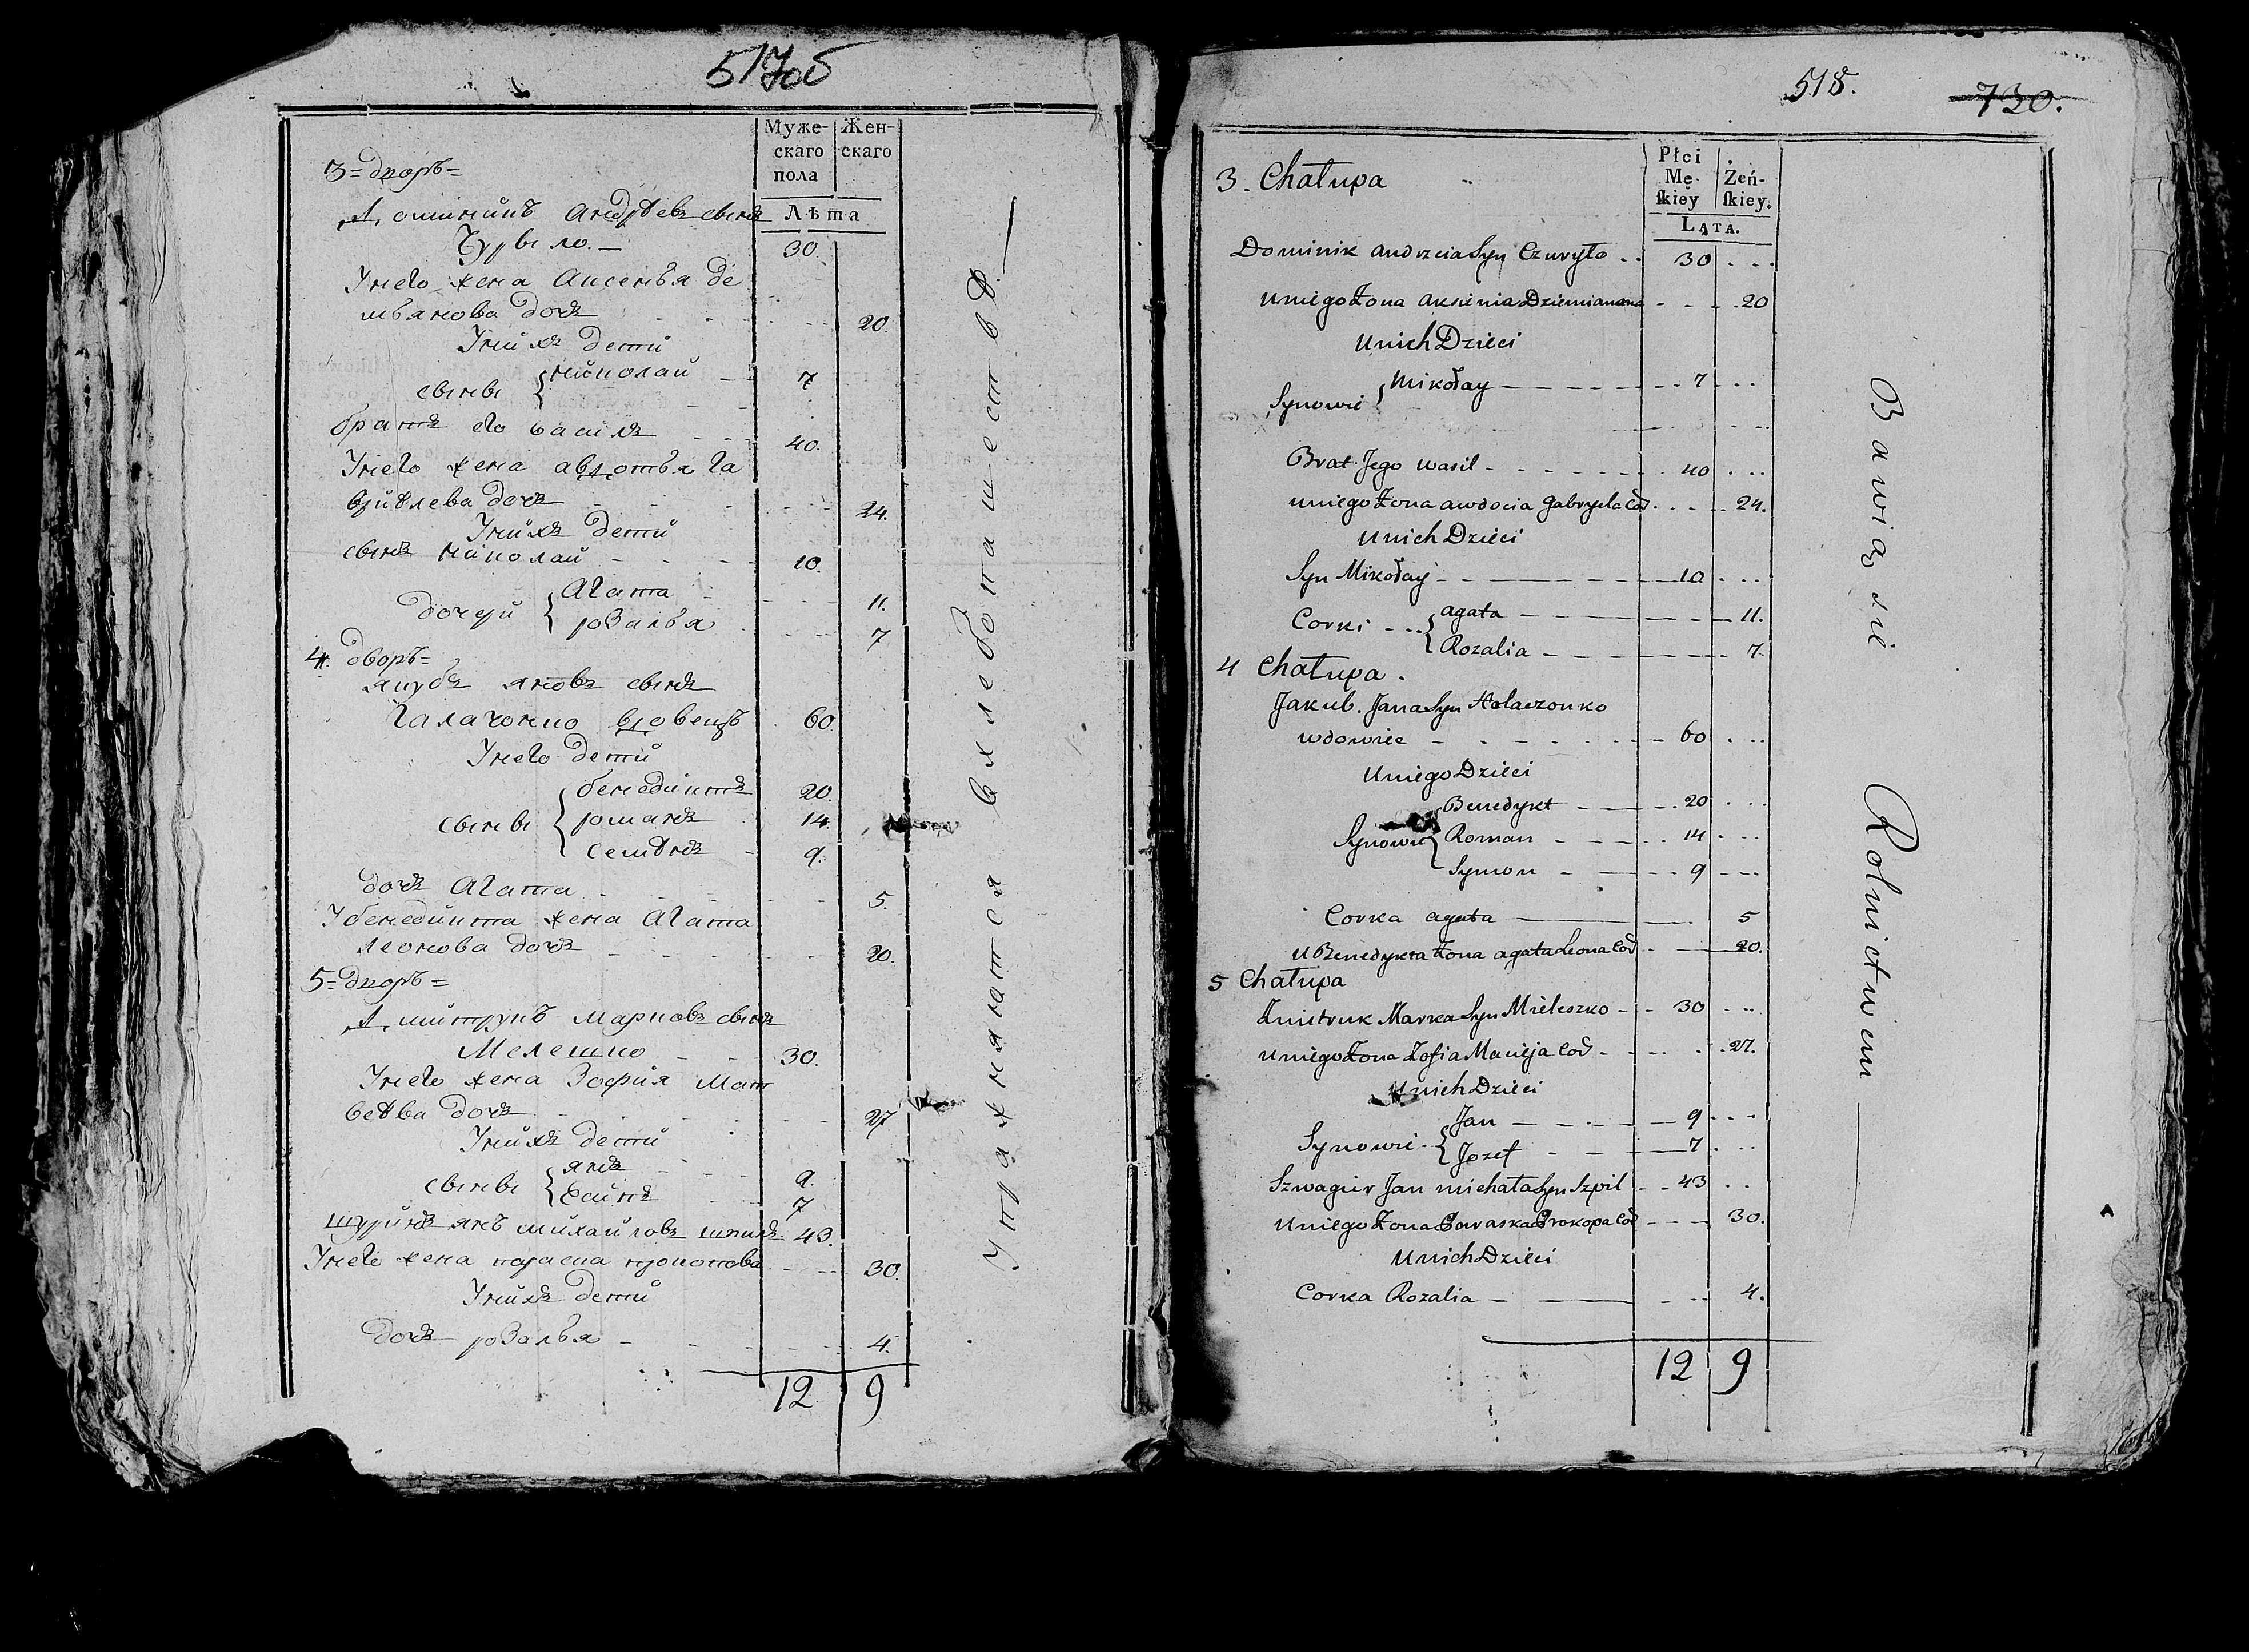 517об
Муже-
скаго
пола
Жен-
скаго
Лѣта
3= дворъ=
Доминикъ Андрѣевъ сынъ
Чурыло. — 30.
Унего жена Аксенья Де
мьянова дочь 20.
Унихъ дети
сыны { Николай — 7
братъ его василь 40.
Унего жена авдотья га
врiѣлева дочь 24.
Унихъ дети
сынъ Николай 10.
дочери { Агата 11.
розалья 7
4. дворъ=
якубъ яновъ сынъ
Галачонко вдовецъ 60.
Унего дети
сыны { бенедиктъ 20.
романъ 14.
семѣнъ 9.
дочь Агата 5.
У бенедикта жена Агата
леонова дочь 20.
5= дворъ=
Дмитрукъ марковъ сынъ
Мелешко 30.
Унего жена Зофия Мат
веѣва дочь 27
Унихъ дети
сыны { янъ 9.
Осипъ 7
шуринъ янъ михайловъ шпиль 43.
Унего жена параска прокопова 30.
Унихъ дети
дочь розалья 4.
12 9
Упражняются въ хлебопашествѣ. —
518.
730.
Płci
Mę-
skiey
Żeń-
skiey.
LATA.
3. Chałupa
Dominik andrzeia Syn Czuryło 30
u niego Żona aksienia Dziemianowa 20
u nich Dzieci
Synowie { Mikołay 7
Brat Jego wasil 40
u niego Żona awdocia Gabryela Cod 24.
u nich Dzieci
Syn Mikołay 10
Corki { agata 11.
Rozalia 7
4 Chałupa.
Jakub. Jana Syn Hołaczonko
wdowiec 60
u niego Dzieci
Synowie { Benedykt 20
Roman 14
Symon 9
Corka agata 5
u Benedykta Żona agata Leona Cod 20.
5 Chałupa
Dmitruk Marka Syn Mieleszko 30
u niego Żona Zofia Macieja Cod 27.
u nich Dzieci
Synowie { Jan 9
Jozef 7
Szwagier Jan michała Syn Szpil 43
u niego Żona Paraska Prokopa Cod 30.
u nich Dzieci
Corka Rozalia 4.
12 9
Bawią się Rolnictwem —